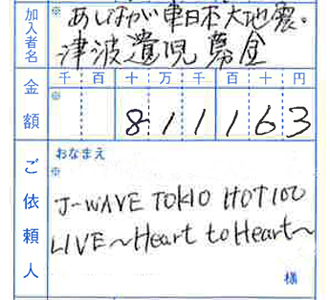 加入者名
※
あしなが東日本大地震・
津波遺児募金
金額
千 百 十 万 千 百 十 円
※
8 1 1 1 6 3
ご依頼人
おなまえ
※
J-WAVE TOKIO HOT100
LIVE～Heart to Heart～
様